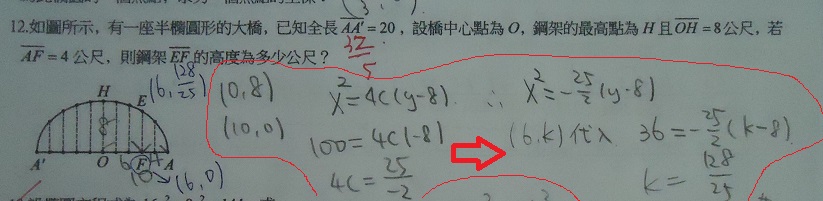 12.如圖所示,有一座半橢圓形的大橋,已知全長AA'=20,設橋中心點為O,鋼架的最高點為H且OH=8公尺,若
AF=4公尺,則鋼架EF的高度為多少公尺?
32/5
(6, 128/25)
(0,8)
(10,0)
x²=4c(y-8)
100=4c(-8)
4c=25/-2
∴ x²=-25/2(y-8)
(6,k)代入 36=-25/2(k-8)
k=128/25
H
E
8
A' O F A
6 4
10
(6,0)